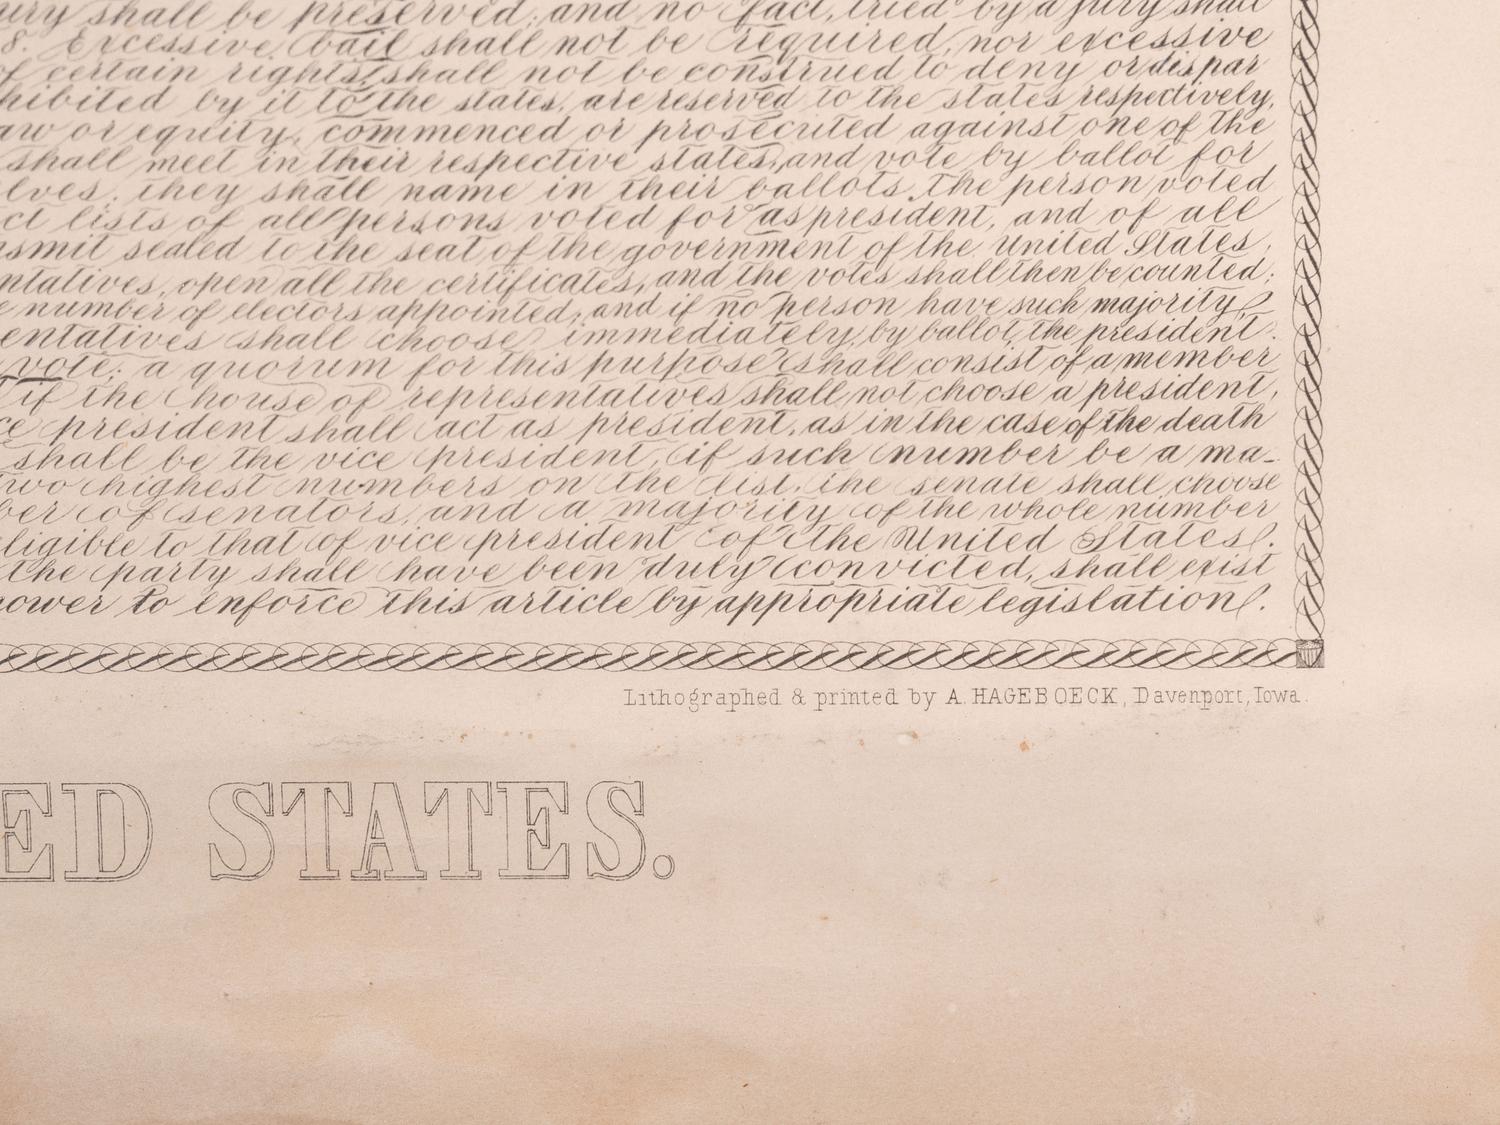 ury shall be preserved; and no fact, tried by a jury shall
8. Excessive bail shall not be required, nor excessive
of certain rights, shall not be construed to deny or dispar
hibited by it to the states, are reserved to the states respectively,
aw or equity, commenced or prosecuted against one of the
shall meet in their respective states, and vote by ballot for
elves; they shall name in their ballots, the person voted
ct lists of all persons voted for as president, and of all
nsmit sealed to the seat of the government of the United States,
ntatives, open all the certificates, and the votes shall then be counted;
e number of electors appointed; and if no person have such majority,
entatives shall choose immediately, by ballot, the president.
vote; a quorum for this purpose shall consist of a member
if the house of representatives shall not choose a president,
ce president shall act as president, as in the case of the death
shall be the vice president, if such number be a ma-
two highest numbers on the list, the senate shall choose
ber of senators, and a majority of the whole number
ligible to that of vice president of the United States.
the party shall have been duly convicted, shall exist
power to enforce this article by appropriate legislation.
Lithographed & printed by A. HAGEBOECK, Davenport, Iowa.
ED STATES.